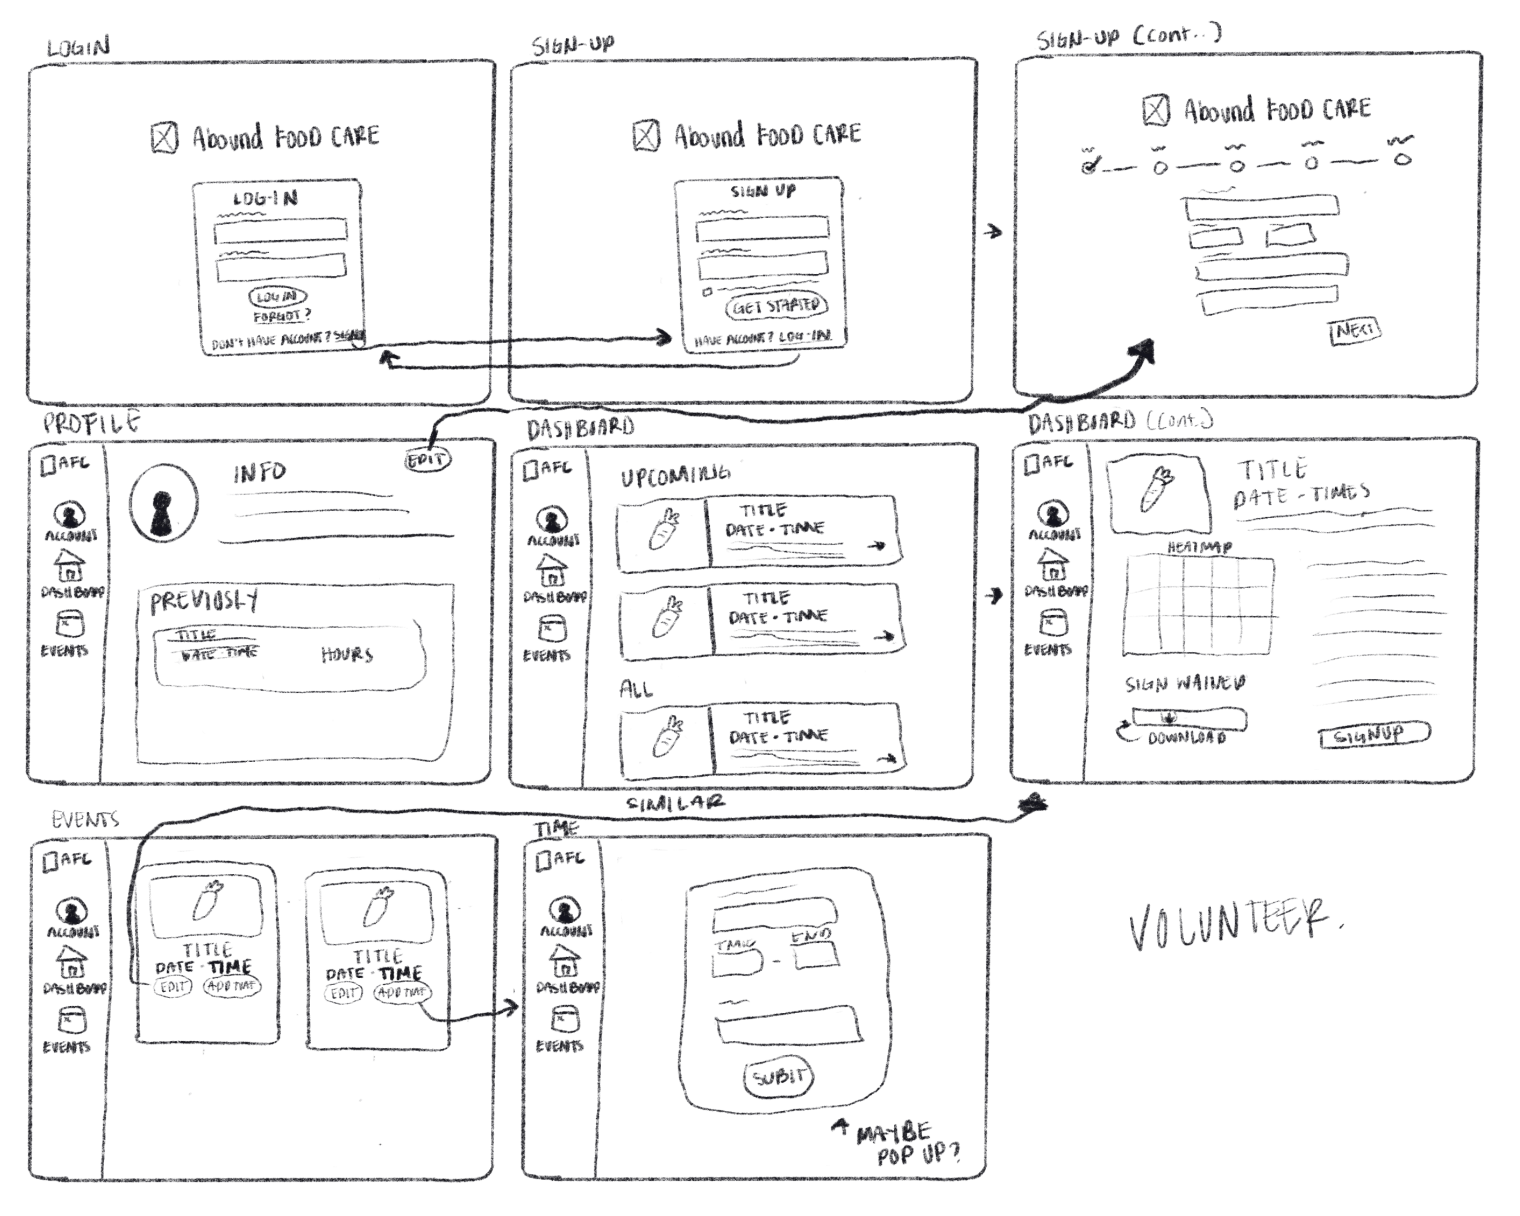 LOGIN
Abound FOOD CARE
LOG-IN
LOG IN
FORGOT?
DON'T HAVE ACCOUNT? SIGNUP
SIGN-UP
Abound FOOD CARE
SIGN UP
GET STARTED
HAVE ACCOUNT? LOG-IN.
SIGN-UP (cont..)
Abound FOOD CARE
NEXT
PROFILE
AFC
ACCOUNT
DASHBOARD
EVENTS
INFO
EDIT
PREVIOSLY
TITLE
DATE TIME
HOURS
DASHBOARD
AFC
ACCOUNT
DASHBOARD
EVENTS
UPCOMING
TITLE
DATE · TIME
TITLE
DATE · TIME
ALL
TITLE
DATE · TIME
DASHBOARD (cont.)
AFC
ACCOUNT
DASHBOARD
EVENTS
TITLE
DATE - TIMES
HEATMAP
SIGN WAIVER
DOWNLOAD
SIGNUP
SIMILAR
EVENTS
AFC
ACCOUNT
DASHBOARD
EVENTS
TITLE
DATE · TIME
EDIT
TITLE
DATE · TIME
EDIT
TIME
AFC
ACCOUNT
DASHBOARD
EVENTS
END
SUBIT
MAYBE
POP UP?
VOLUNTEER.